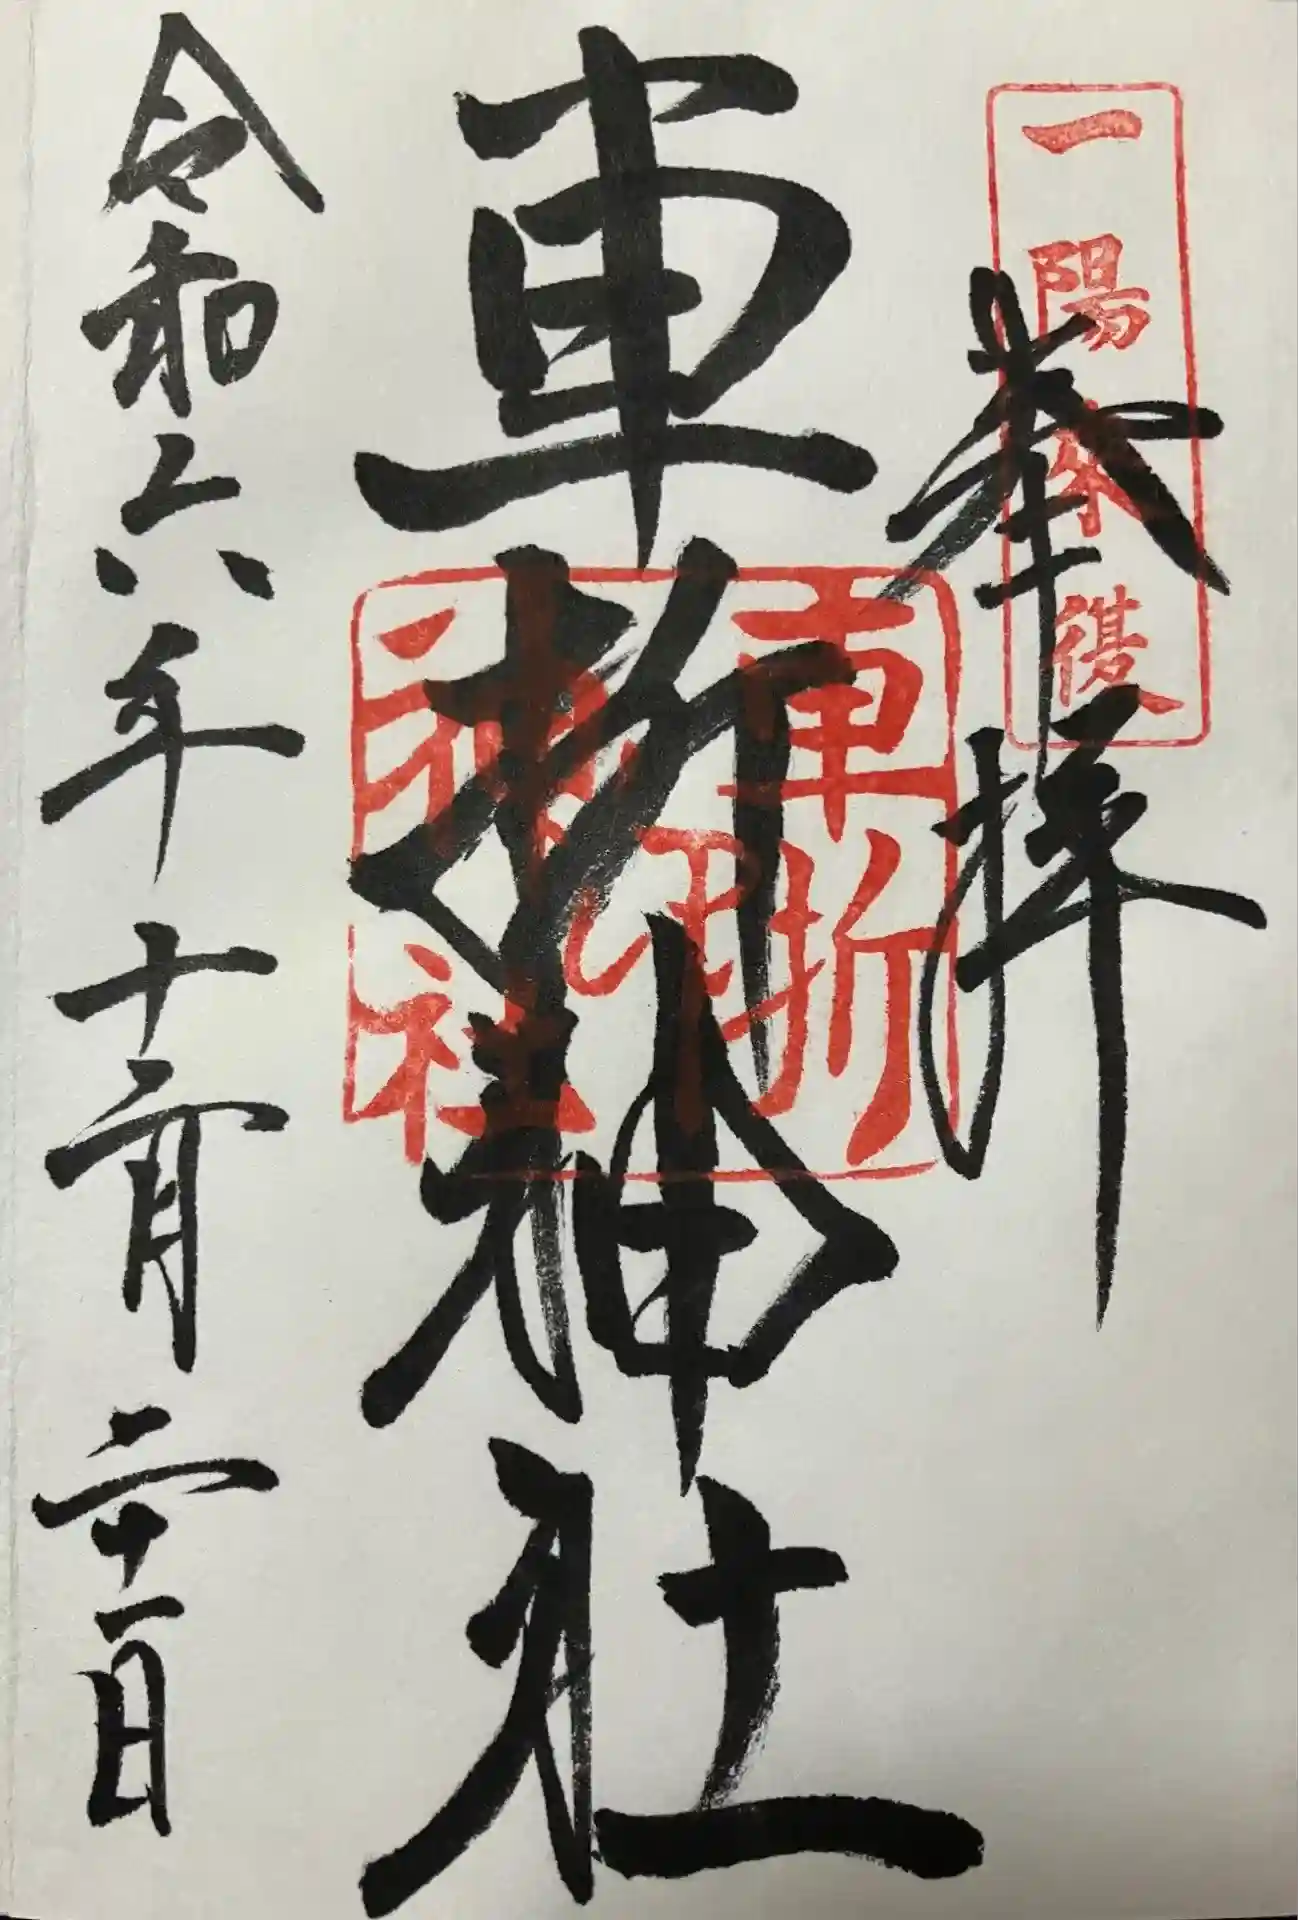 一陽来復
奉拝
車折神社
車折
神社
印
令和六年十二月二十一日